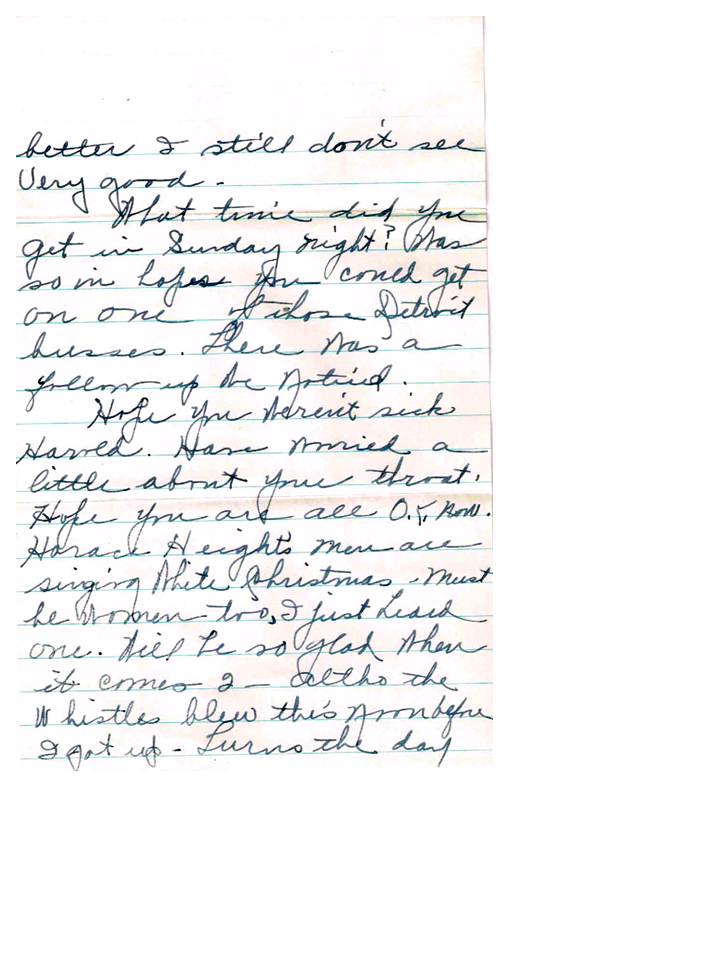 better I still don't see
Very good -
What time did you
get in Sunday night? Was
so in hopes you could get
on one of those Detroit
busses. There was a
follow-up we noticed.
Hope you weren't sick
Harold. Have worried a
little about your throat.
Hope you are all O.K. now.
Horace Height's men are
singing White Christmas - Must
be women too, I just heard
one. Will be so glad when
it comes 2 - Altho the
Whistles blew this noon before
I got up - Turns the day